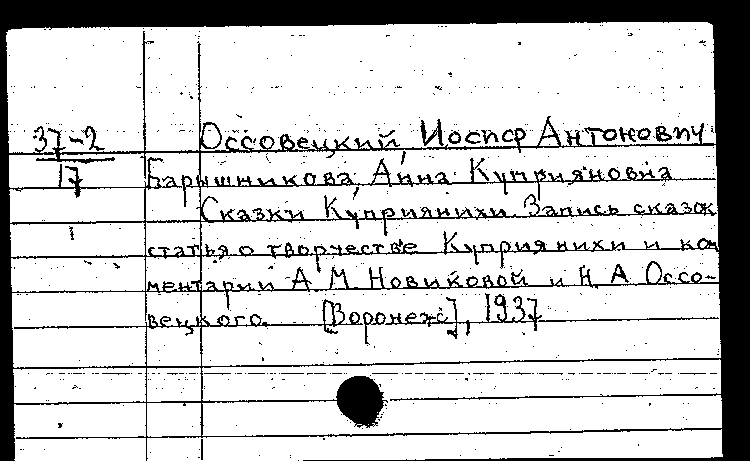 37-2
17
Оссовецкий, Иосиф Антонович
Барышникова, Анна Куприяновна
Сказки Куприянихи. Запись сказок
статья о творчестве Куприянихи и ком
ментарии А. М. Новиковой и И. А. Оссо-
вецкого. [Воронеж], 1937